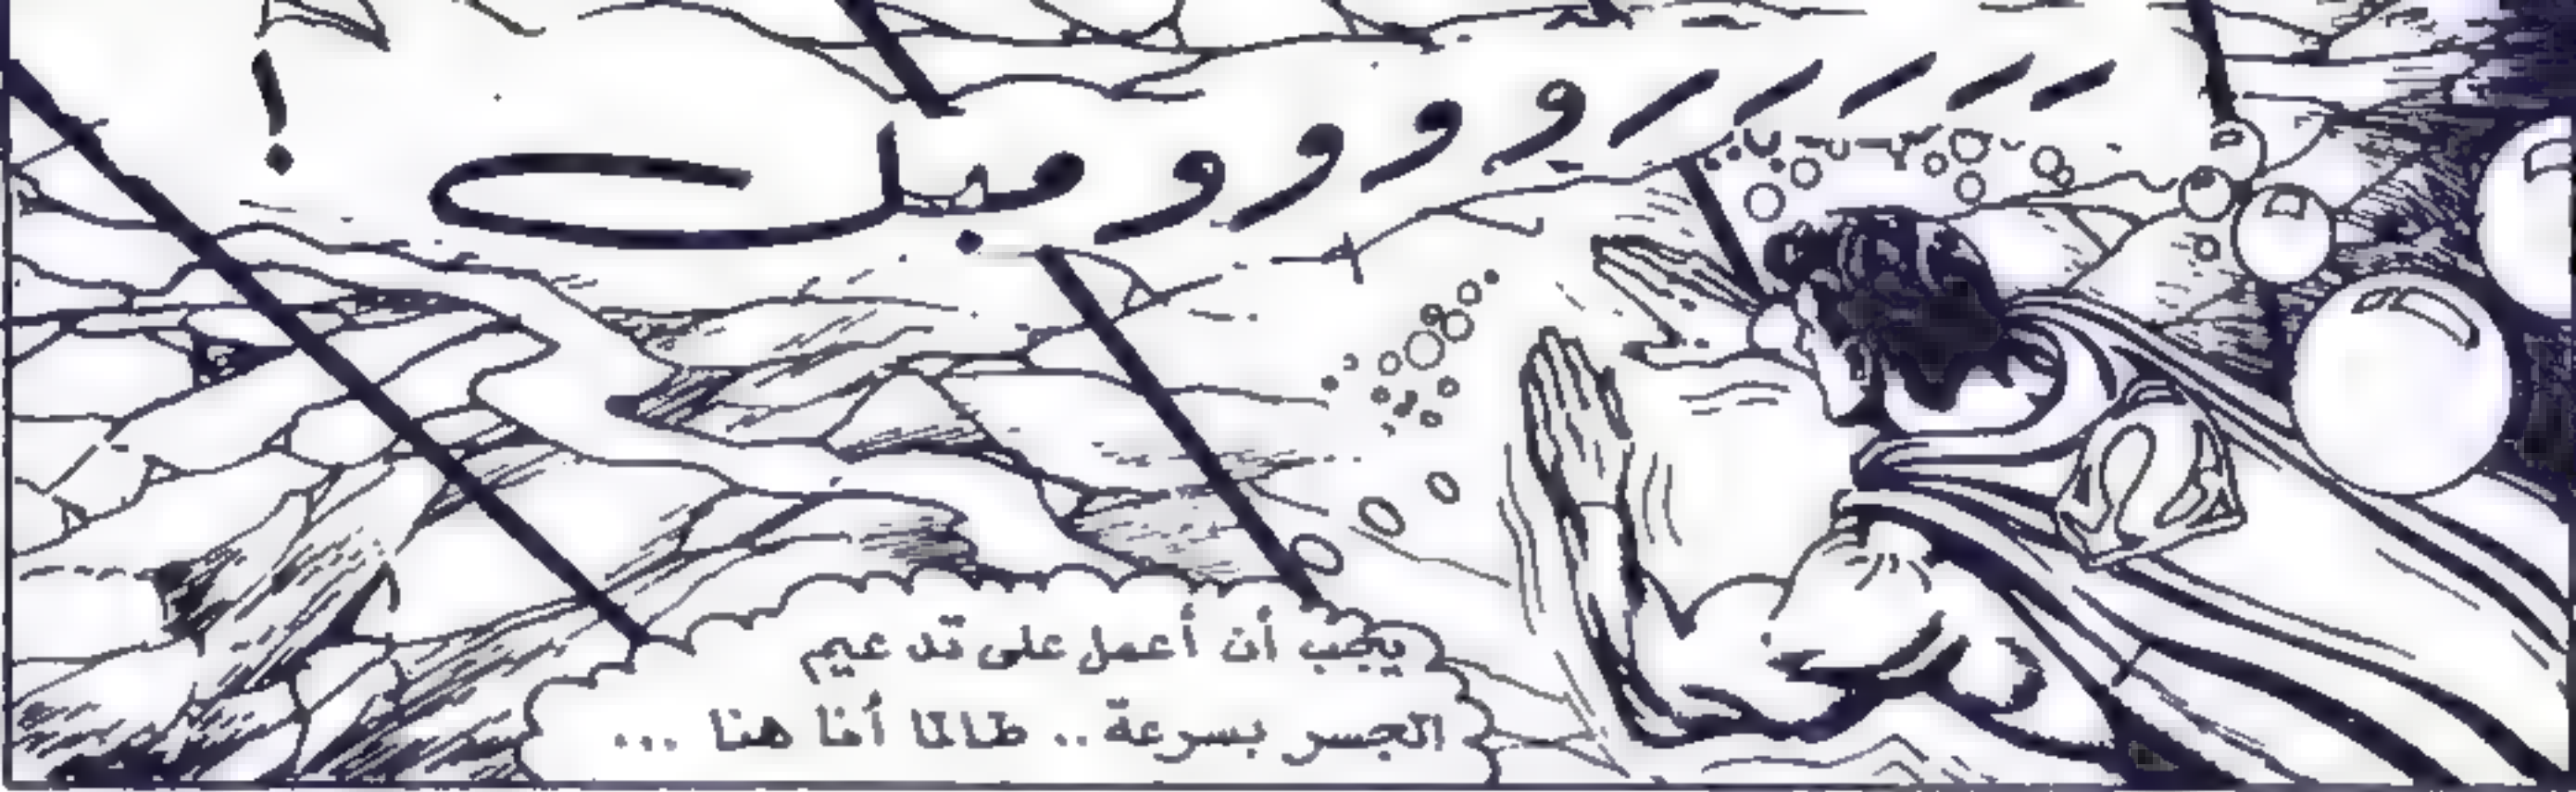 ررررروووومبل!
يجب أن أعمل على تدعيم
الجسر بسرعة .. طالما أنا هنا ...